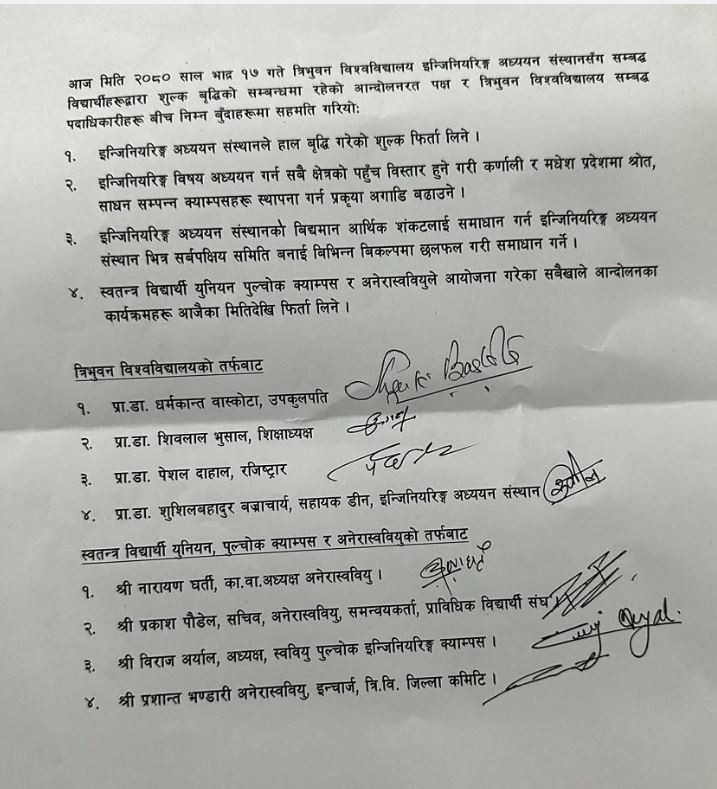 आज मिति २०८० साल भाद्र १७ गते त्रिभुवन विश्वविद्यालय इन्जिनियरिङ्ग अध्ययन संस्थानसँग सम्बद्ध
विद्यार्थीहरूद्वारा शुल्क बृद्धिको सम्बन्धमा रहेको आन्दोलनरत पक्ष र त्रिभुवन विश्वविद्यालय सम्बद्ध
पदाधिकारीहरू बीच निम्न बुँदाहरूमा सहमति गरियोः
१. इन्जिनियरिङ्ग अध्ययन संस्थानले हाल बृद्धि गरेको शुल्क फिर्ता लिने ।
२. इन्जिनियरिङ्ग विषय अध्ययन गर्न सबै क्षेत्रको पहुँच विस्तार हुने गरी कर्णाली र मधेश प्रदेशमा श्रोत,
साधन सम्पन्न क्याम्पसहरू स्थापना गर्न प्रकृया अगाडि बढाउने ।
३. इन्जिनियरिङ्ग अध्ययन संस्थानको विद्यमान आर्थिक शंकटलाई समाधान गर्न इन्जिनियरिङ्ग अध्ययन
संस्थान भित्र सर्वपक्षिय समिति बनाई बिभिन्न विकल्पमा छलफल गरी समाधान गर्ने ।
४. स्वतन्त्र विद्यार्थी युनियन पुल्चोक क्याम्पस र अनेरास्ववियुले आयोजना गरेका सबैखाले आन्दोलनका
कार्यक्रमहरू आजैका मितिदेखि फिर्ता लिने ।
त्रिभुवन विश्वविद्यालयको तर्फबाट
१. प्रा.डा. धर्मकान्त वास्कोटा, उपकुलपति
२. प्रा.डा. शिवलाल भुसाल, शिक्षाध्यक्ष
३. प्रा.डा. पेशल दाहाल, रजिष्ट्रार
४. प्रा.डा. शुशिलबहादुर बज्राचार्य, सहायक डीन, इन्जिनियरिङ्ग अध्ययन संस्थान
स्वतन्त्र विद्यार्थी युनियन, पुल्चोक क्याम्पस र अनेरास्ववियुको तर्फबाट
१. श्री नारायण घर्ती, का.वा.अध्यक्ष अनेरास्ववियु ।
२. श्री प्रकाश पौडेल, सचिव, अनेरास्ववियु, समन्वयकर्ता, प्राविधिक विद्यार्थी संघ ।
३. श्री विराज अर्याल, अध्यक्ष, स्ववियु पुल्चोक इन्जिनियरिङ्ग क्याम्पस ।
४. श्री प्रशान्त भण्डारी अनेरास्ववियु, इन्चार्ज, त्रि.वि. जिल्ला कमिटि ।